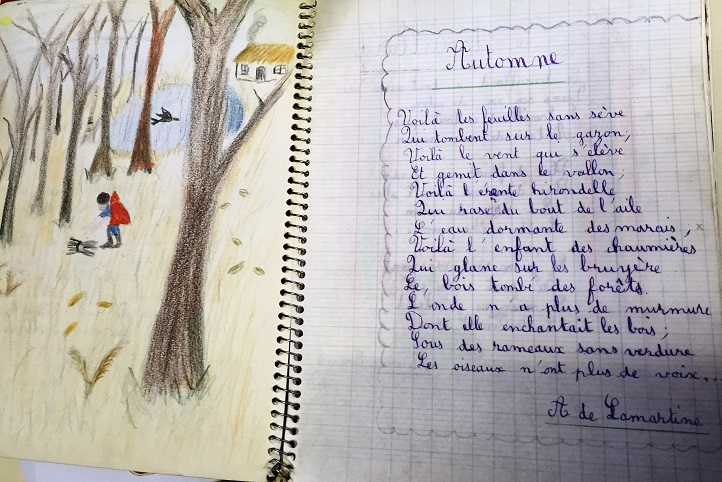 Automne
Voilà les feuilles sans sève
Qui tombent sur le gazon,
Voilà le vent qui s'élève
Et gemit dans le vallon,
Voilà l'erente hirondelle
Qui rase du bout de l'aile
L'eau dormante des marais,
Voilà l'enfant des chaumières
Qui glane sur les bruyère
Le, bois tombé des forêts.
L'onde n'a plus de murmure
Dont elle enchantait les bois;
Sous des rameaux sans verdure
Les oiseaux n'ont plus de voix...
A de Lamartine